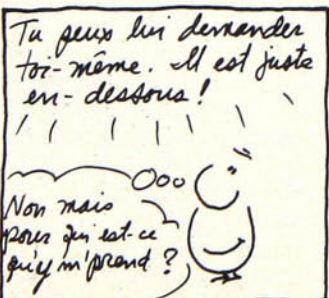 Tu peux lui demander
toi-même. Il est juste
en-dessous !
Non mais
pour qui est-ce
qu'y m'prend ?